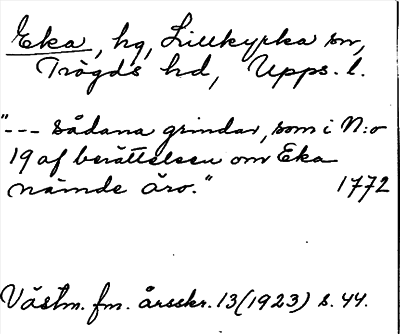 Eka, hg, Lillkyrka sn,
Trögds hd, Upps. l.
"--- sådana grindar, som i N:o
19 af berättelsen om Eka
nämde äro."
1772
Västm. fm. årsskr. 13 (1923) s. 44.